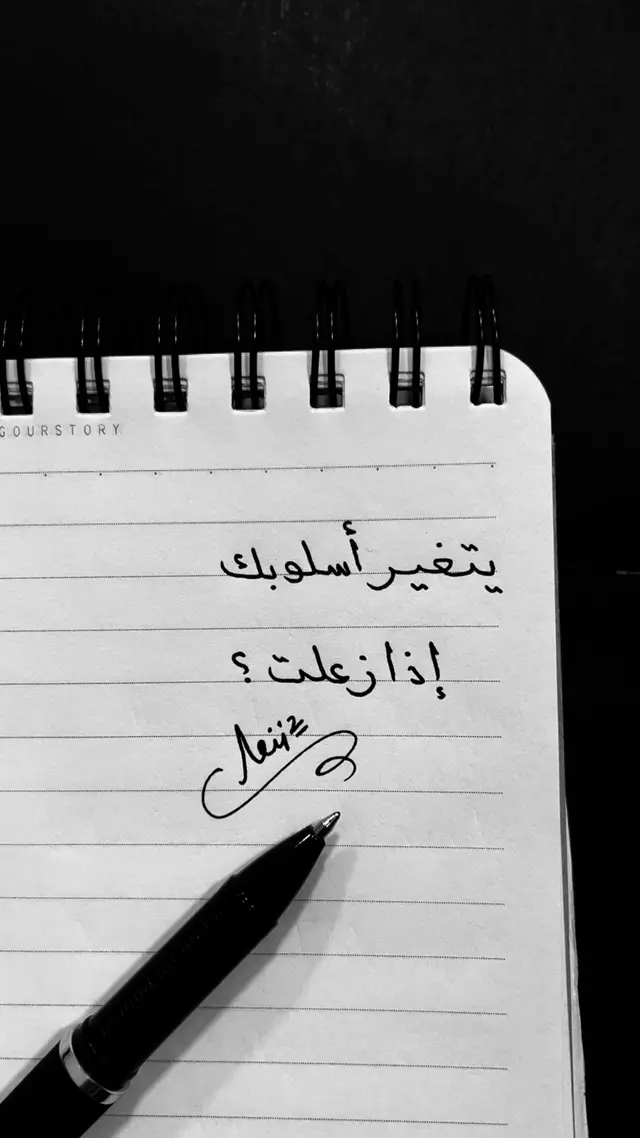 GOURSTORY
يتغير أسلوبك
إذا زعلت ؟